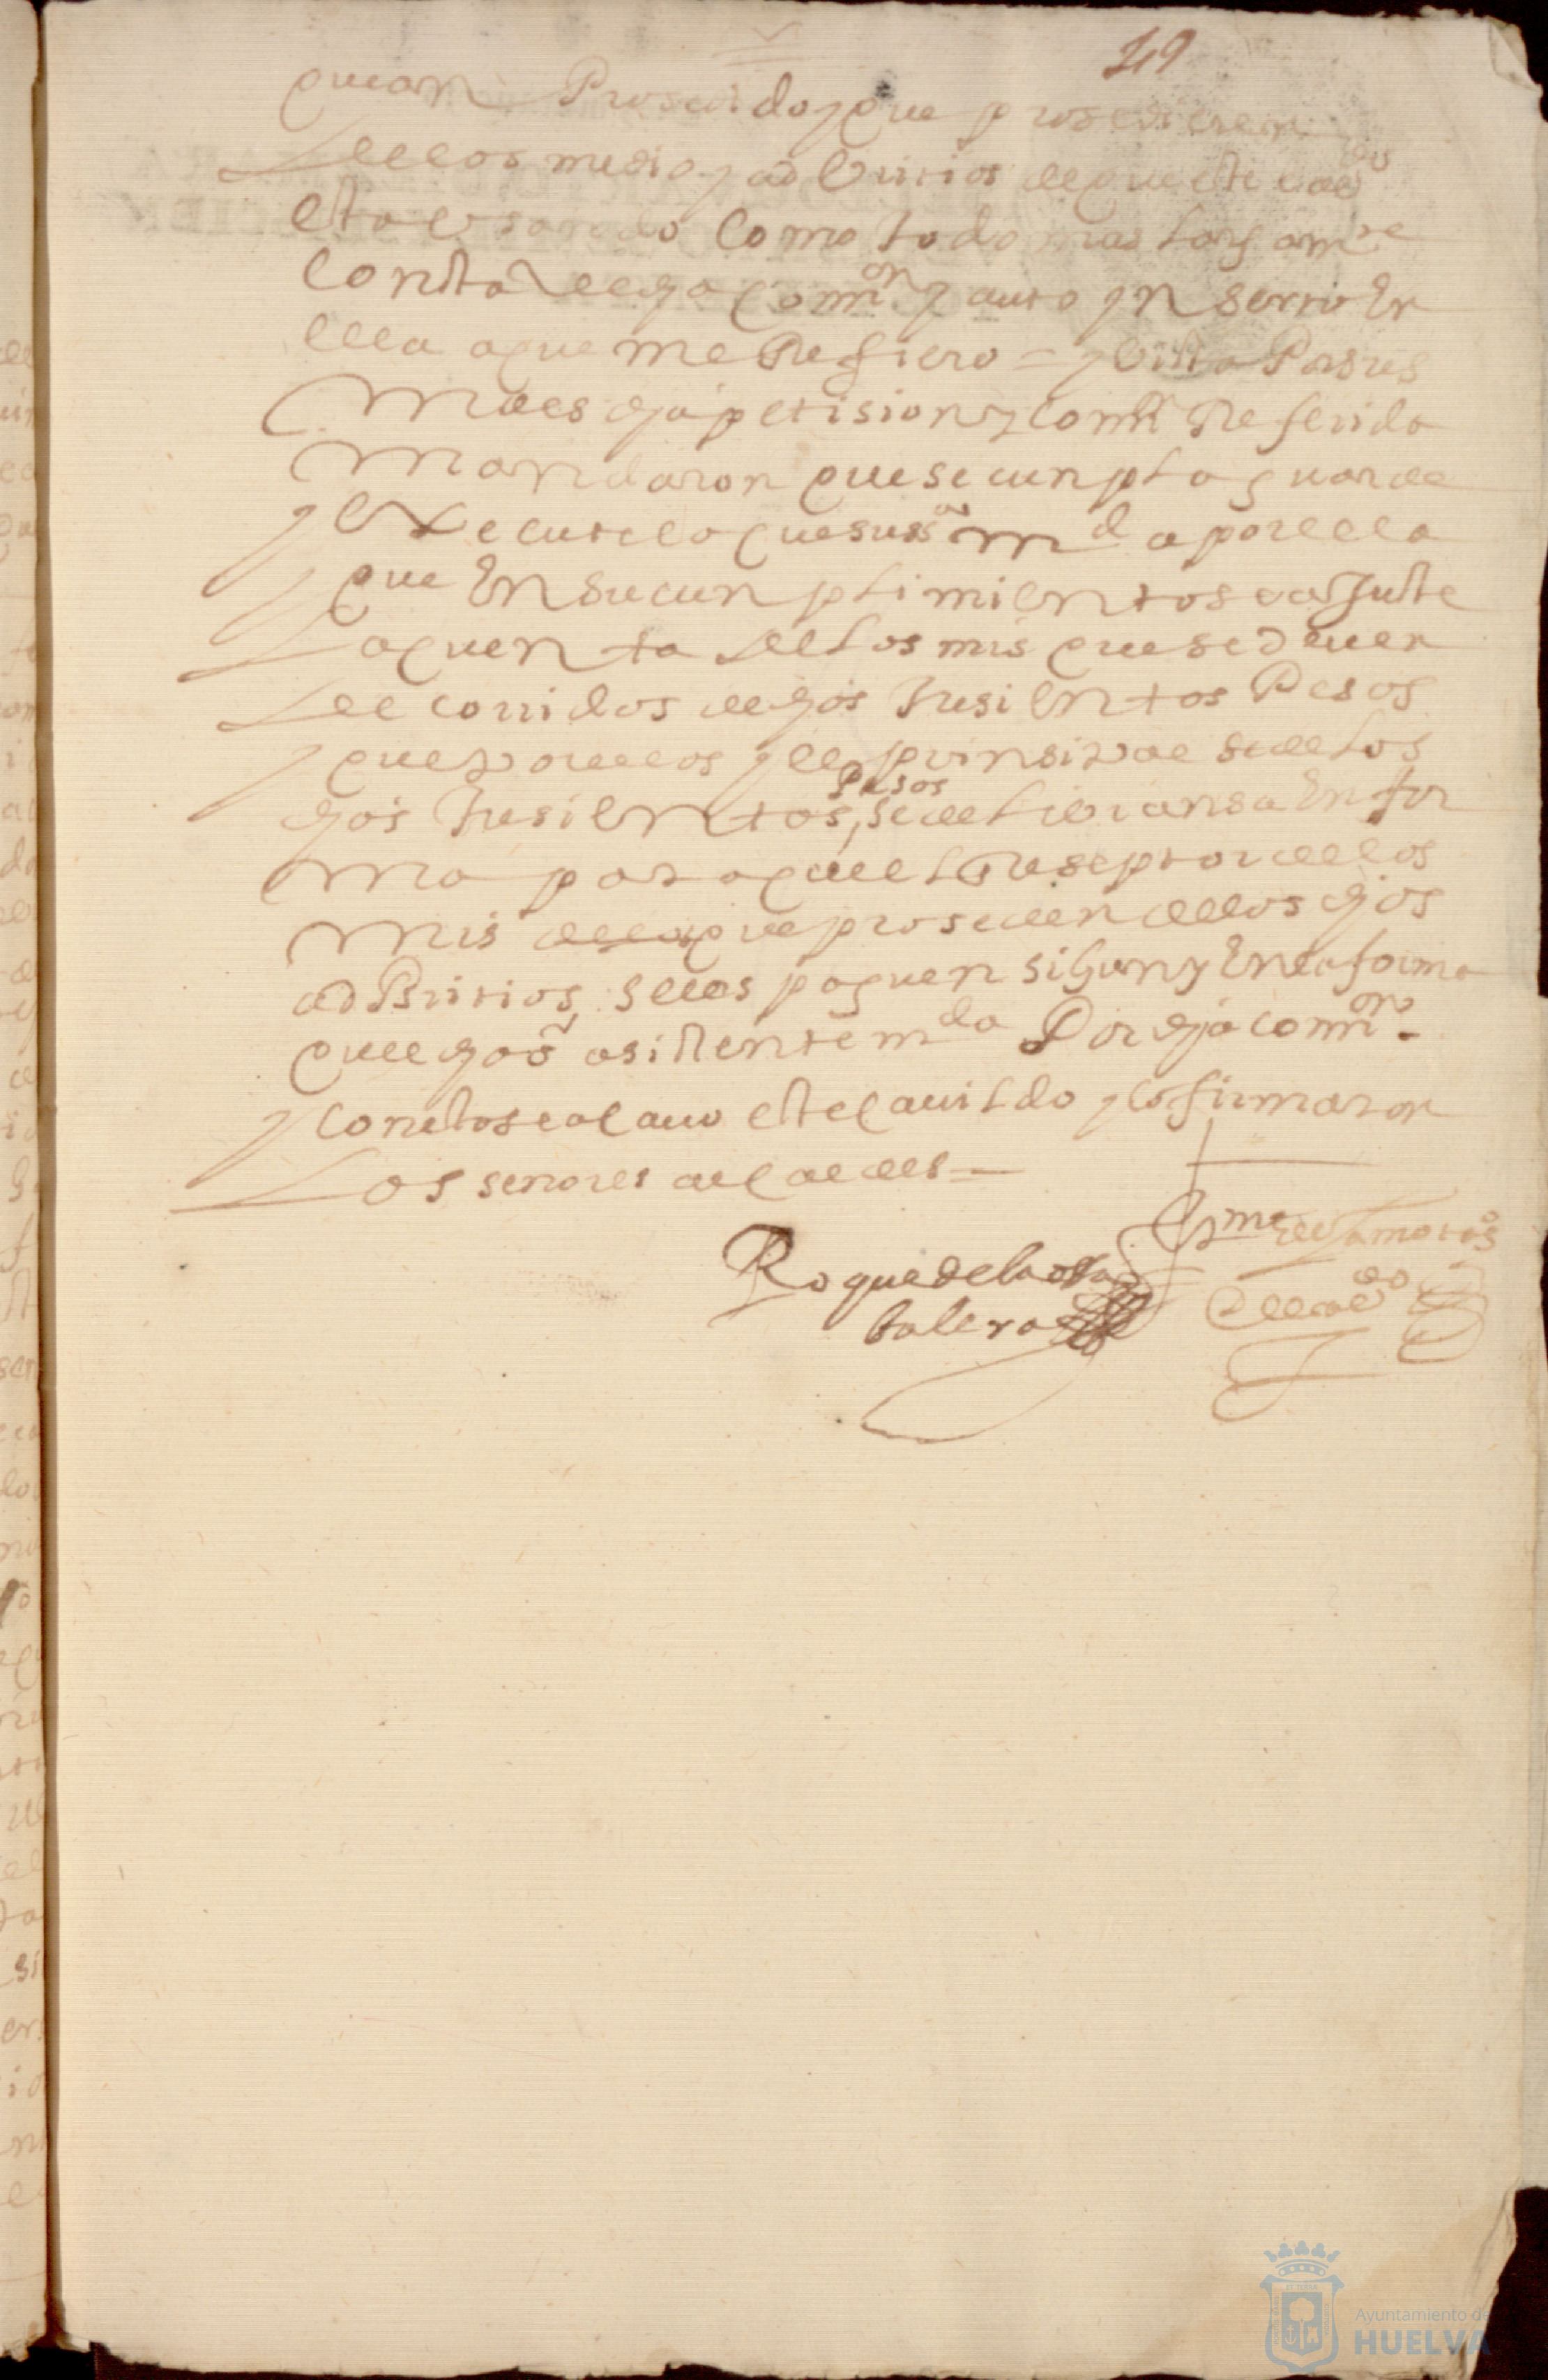 49
quean Prosedido y que prosedieren
de los medios y adbitrios de que este cavdo
esta usando como todo mas largamte
consta de dha comon y auto ynserto En
ella a que me Refiero = y Vista Por sus
Mdes dha petision y comn Referida
Mandaron que se cunpla guarde
y Execute lo que sus sa md a por ella
que En su cunplimiento se ajuste
la quenta de los mrs que se deven
de corridos de dhos Tresientos Pesos
y que de ellos y del prinsipal de los
dhos Tresientos Pesos, se de libransa En for
ma para que el Reseptor de los
mrs que proseden de los dhos
adBitrios, se les paguen sigun y En la forma
que dho sr asistente mda Por dha comon.
y con esto se acavo este cavildo y lo firmaron
Los señores alcaldes =
Roque de la ossa
balera
del cavdo
Ayuntamiento de
HUELVA